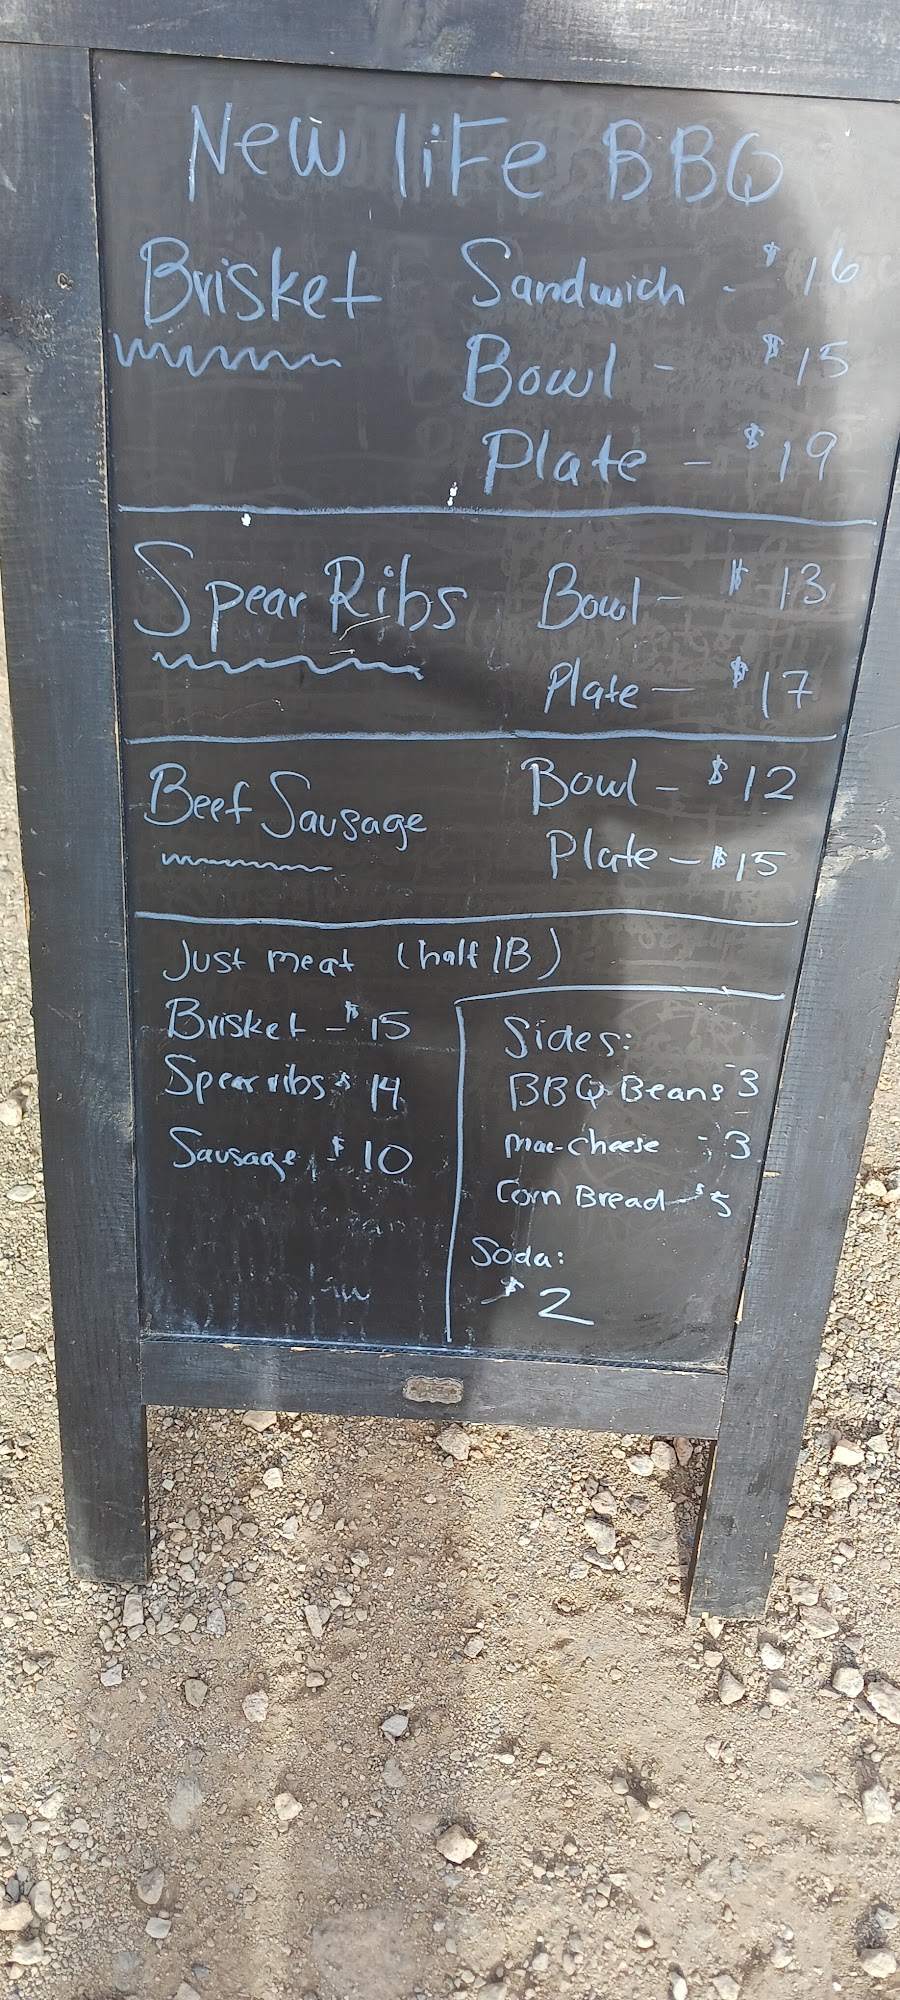 New life BBQ
Brisket Sandwich - $16
Bowl - $15
Plate - $19
Spear Ribs Bowl - $13
Plate - $17
Beef Sausage Bowl - $12
Plate - $15
Just meat (half lB)
Brisket - $15
Spear ribs $14
Sausage $10
Sides:
BBQ Beans 3
Mac-Cheese - 3
Corn Bread - $5
Soda:
$2